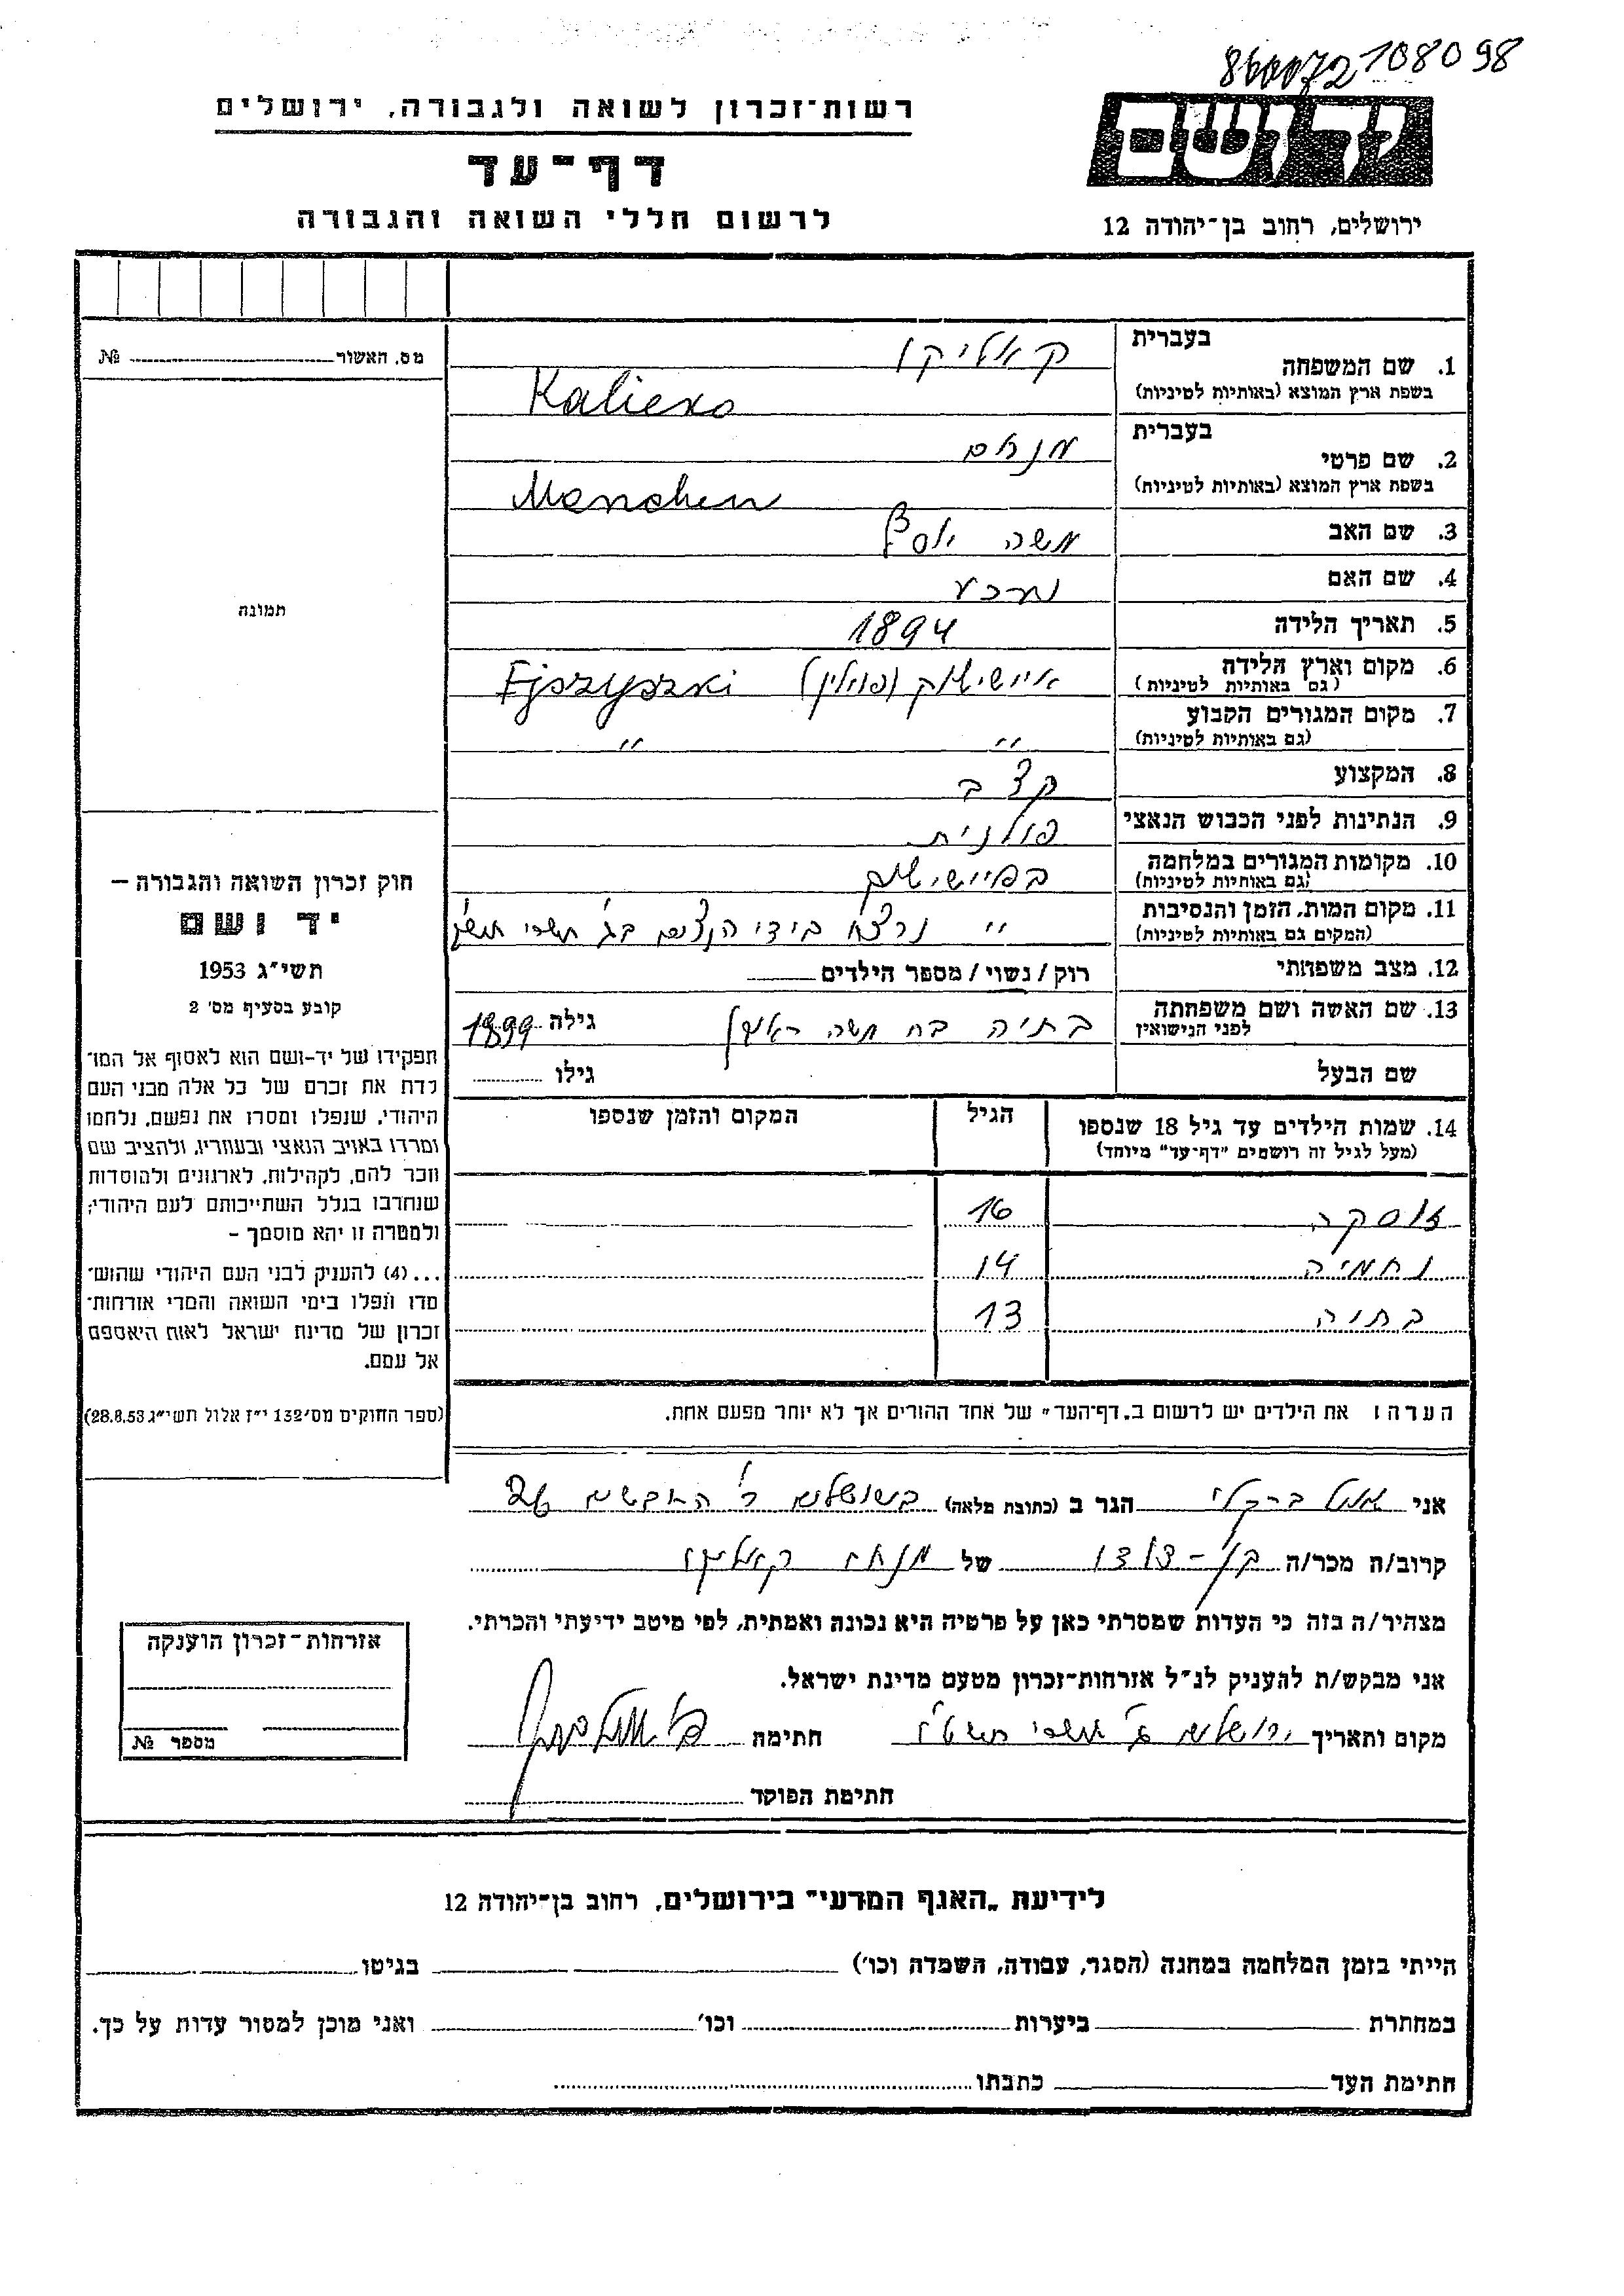 860072 108098
יד ושם
רשות־זכרון לשואה ולגבורה, ירושלים
דף־עד
לרשום חללי השואה והגבורה
ירושלים, רחוב בן־יהודה 12
מס. האשור № 
תמונה
חוק זכרון השואה והגבורה –
יד ושם
תשי״ג 1953
קובע בסעיף מס׳ 2
תפקידו של יד-ושם הוא לאסוף אל המו־
לדת את זכרם של כל אלה מבני העם
היהודי, שנפלו ומסרו את נפשם, נלחמו
ומרדו באויב הנאצי ובעוזריו, ולהציב שם
וזכר להם, לקהילות, לארגונים ולמוסדות
שנחרבו בגלל השתייכותם לעם היהודי;
ולמטרה זו יהא מוסמך –
...(4) להעניק לבני העם היהודי שהוש־
מדו ונפלו בימי השואה והמרי אזרחות־
זכרון של מדינת ישראל לאות היאספם
אל עמם.
(ספר החוקים מס׳ 132 י״ז אלול תשי״ג 28.8.53)
בעברית קאליקו
1. שם המשפחה
בשפת ארץ המוצא (באותיות לטיניות) Kalieko
בעברית מנחם
2. שם פרטי
בשפת ארץ המוצא (באותיות לטיניות) Menchem
3. שם האב משה יוסף
4. שם האם
5. תאריך הלידה 1894
6. מקום וארץ הלידה (גם באותיות לטיניות) אישישוק (פולין) Ejszyszki
7. מקום המגורים הקבוע (גם באותיות לטיניות) ״ ״
8. המקצוע קצב
9. הנתינות לפני הכבוש הנאצי פולנית
10. מקומות המגורים במלחמה (גם באותיות לטיניות)
11. מקום המות, הזמן והנסיבות (המקום גם באותיות לטיניות) ״ נרצח בידי הנצים בג׳ תשרי
12. מצב משפחתי רוק / נשוי / מספר הילדים
13. שם האשה ושם משפחתה לפני הנישואין בתיה בת משה גילה 1899
שם הבעל גילו
14. שמות הילדים עד גיל 18 שנספו (מעל לגיל זה רושמים ״דף־עד״ מיוחד) הגיל המקום והזמן שנספו
זוסקה 16
נחמיה 14
בתיה 13
הערה: את הילדים יש לרשום ב„דף־העד״ של אחד ההורים אך לא יותר מפעם אחת.
אני ברקלי הגר ב (כתובת מלאה) בירושלים ר׳ 26
קרוב/ה מכר/ה בן-דודו של מנחם קאליקו
מצהיר/ה בזה כי העדות שמסרתי כאן על פרטיה היא נכונה ואמתית, לפי מיטב ידיעתי והכרתי.
אני מבקש/ת להעניק לנ״ל אזרחות־זכרון מטעם מדינת ישראל.
מקום ותאריך ירושלים ג׳ תשרי תשט״ז חתימה
חתימת הפוקד
אזרחות־זכרון הוענקה
מספר №
לידיעת „האגף המדעי״ בירושלים, רחוב בן־יהודה 12
הייתי בזמן המלחמה במחנה (הסגר, עבודה, השמדה וכו׳) בגיטו
במחתרת ביערות וכו׳ ואני מוכן למסור עדות על כך.
חתימת העד כתבתו